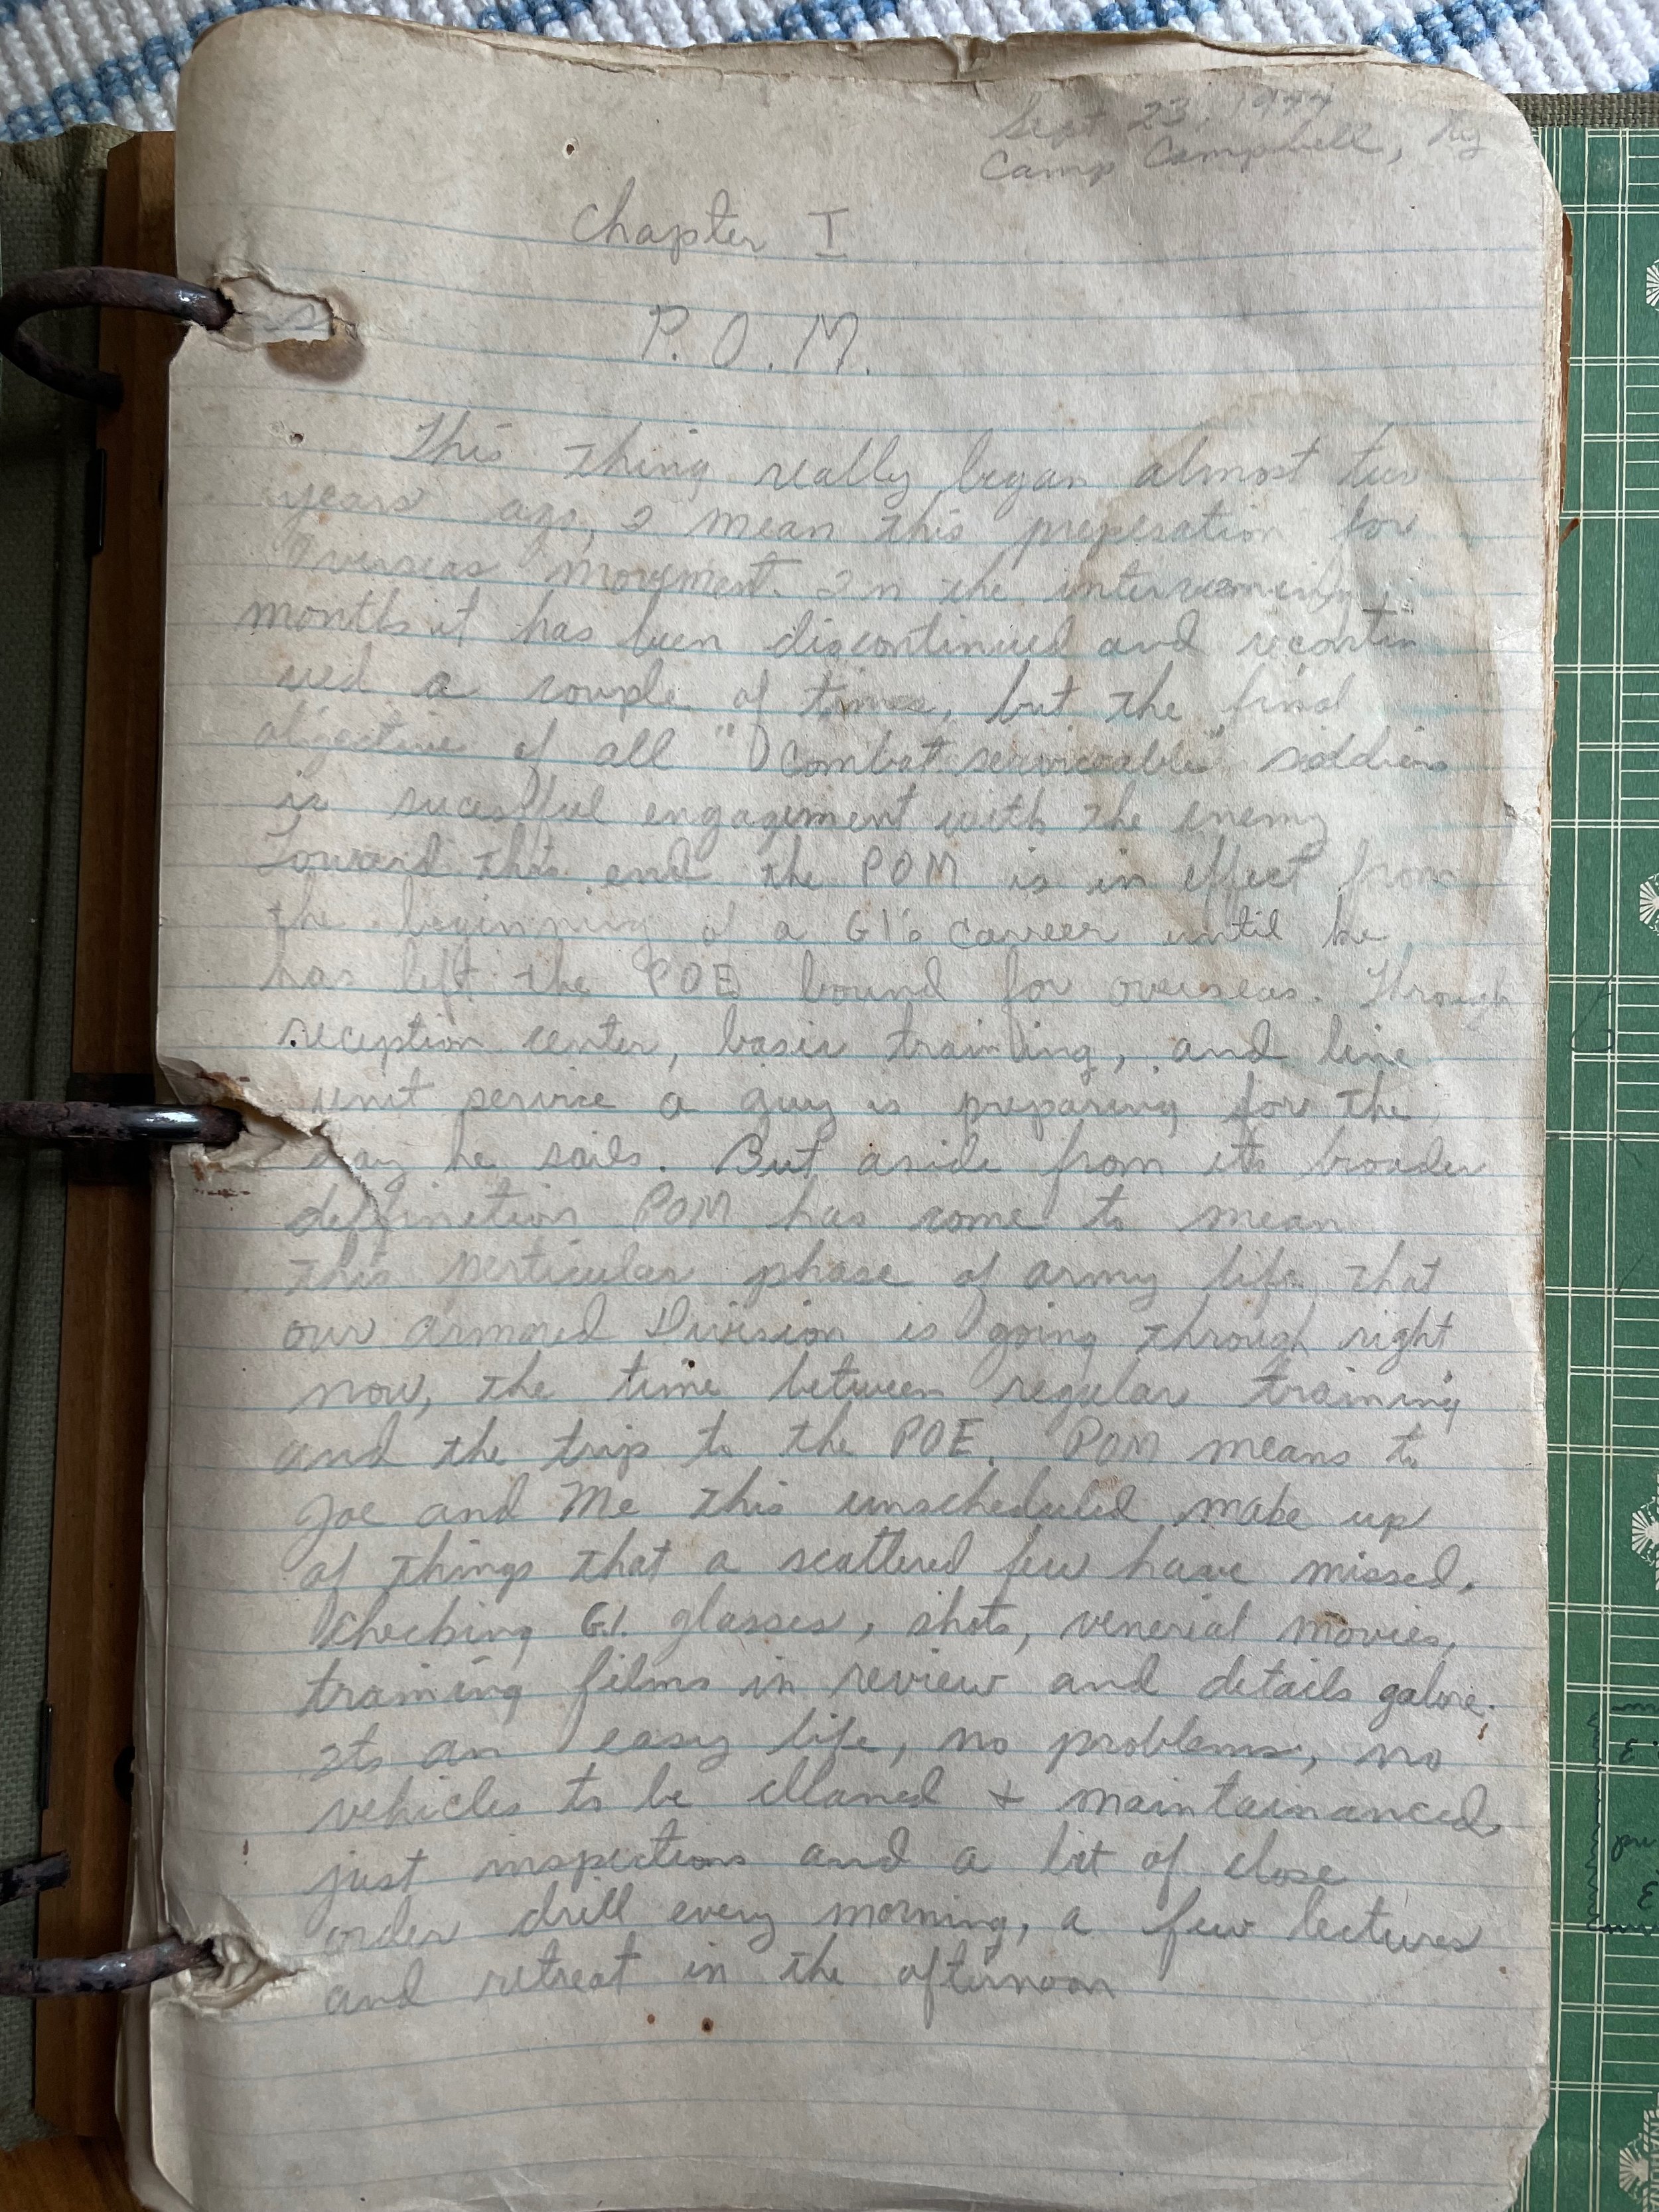 Sept 23, 1944
Camp Campbell, Ky
Chapter I
P.O.M.
This thing really began almost two
years ago, I mean this preperation for
Overseas Movement. In the intervening
months it has been discontinued and recontin
ued a couple of times, but the final
objective of all "Combat serviceable" soldiers
is sucessful engagement with the enemy
Toward that end the POM is in effect from
the beginning of a GI's career until he
has left the POE bound for overseas. Through
reception center, basic training, and line
unit service a guy is preparing for the
day he sails. But aside from its broader
deffinetion POM has come to mean
this perticular phase of army life that
our armored Division is going through right
now, the time between regular training
and the trip to the POE. POM means to
Joe and Me this unscheduled make up
of things that a scattered few have missed.
Checking G.I. glasses, shots, venerial movies,
training films in review and details galore.
Its an easy life, no problems, no
vehicles to be cleaned + maintainanced
just inspections and a bit of close
order drill every morning, a few lectures
and retreat in the afternoon